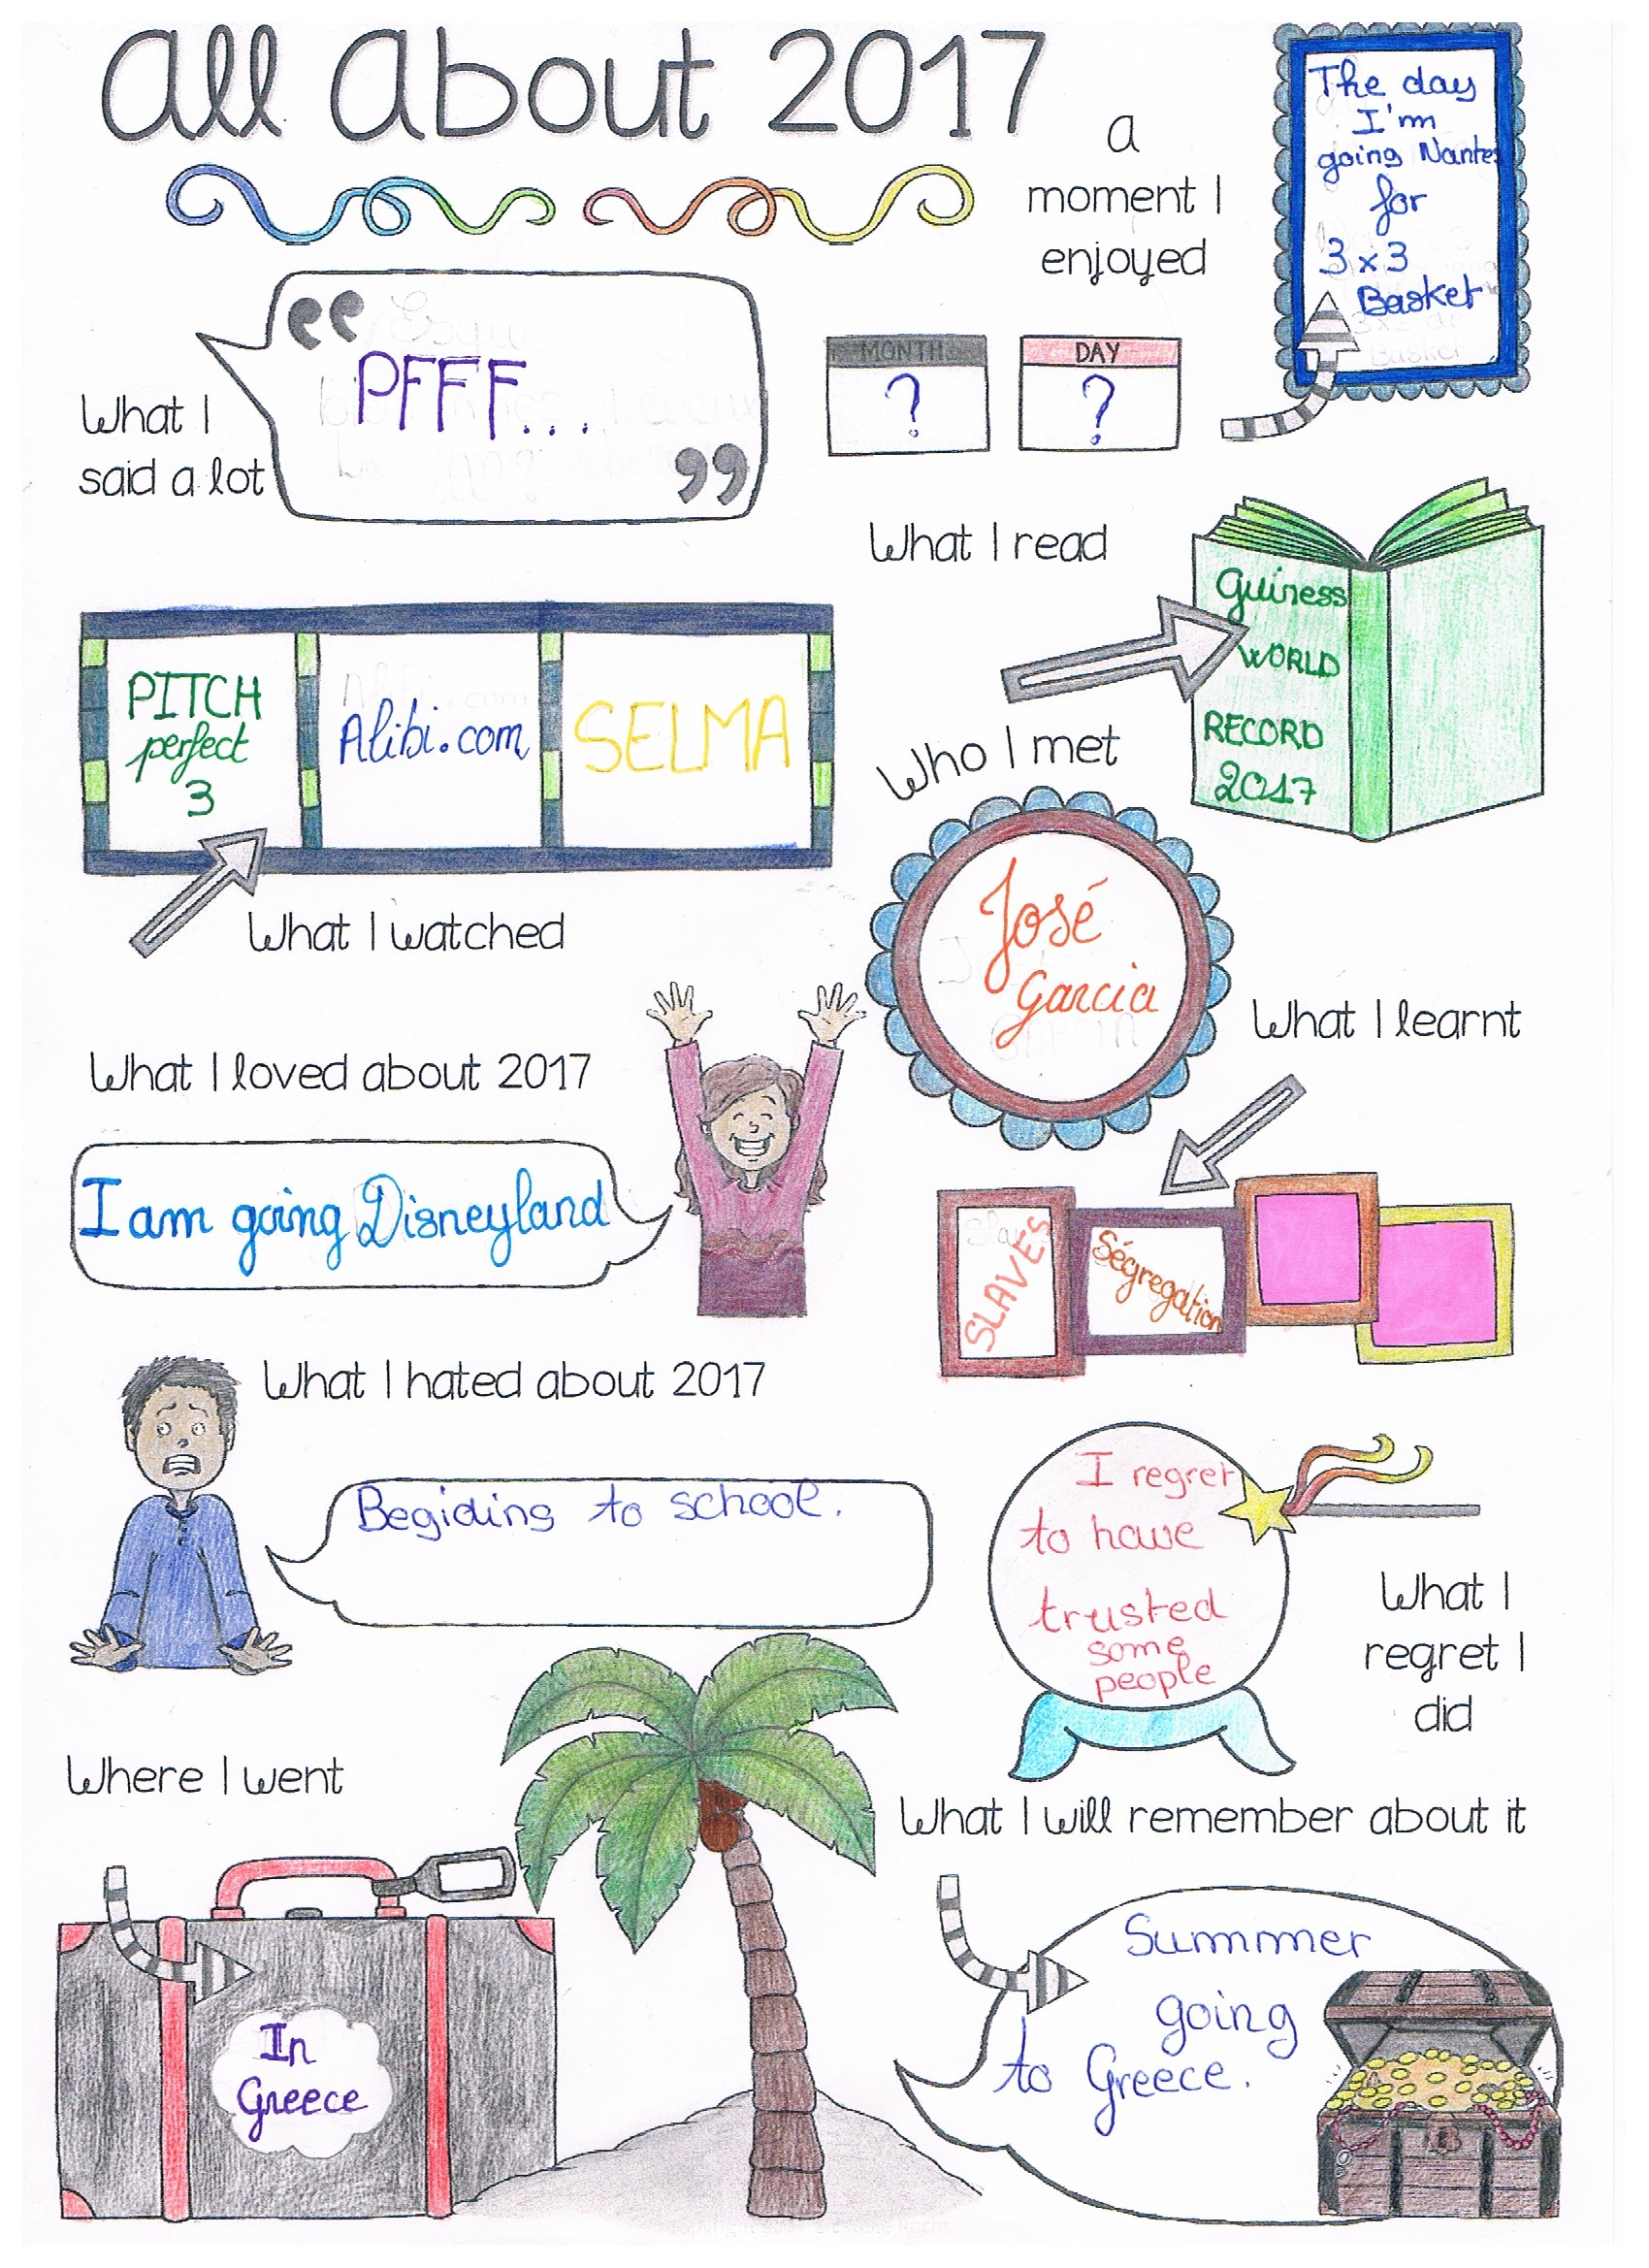 All About 2017
a
moment I
enjoyed
The day
I'm
going Nantes
for
3x3
Basket
MONTH
?
DAY
?
What I
said a lot
PFFF...
What I read
Guiness
WORLD
RECORD
2017
PITCH
perfect
3
Alibi.com
SELMA
What I watched
Who I met
José
Garcia
What I learnt
SLAVES
Ségregation
What I loved about 2017
I am going Disneyland
What I hated about 2017
Begiding to school.
I regret
to have
trusted
some
people
What I
regret I
did
Where I went
In
Greece
What I will remember about it
Summer
going
to Greece.